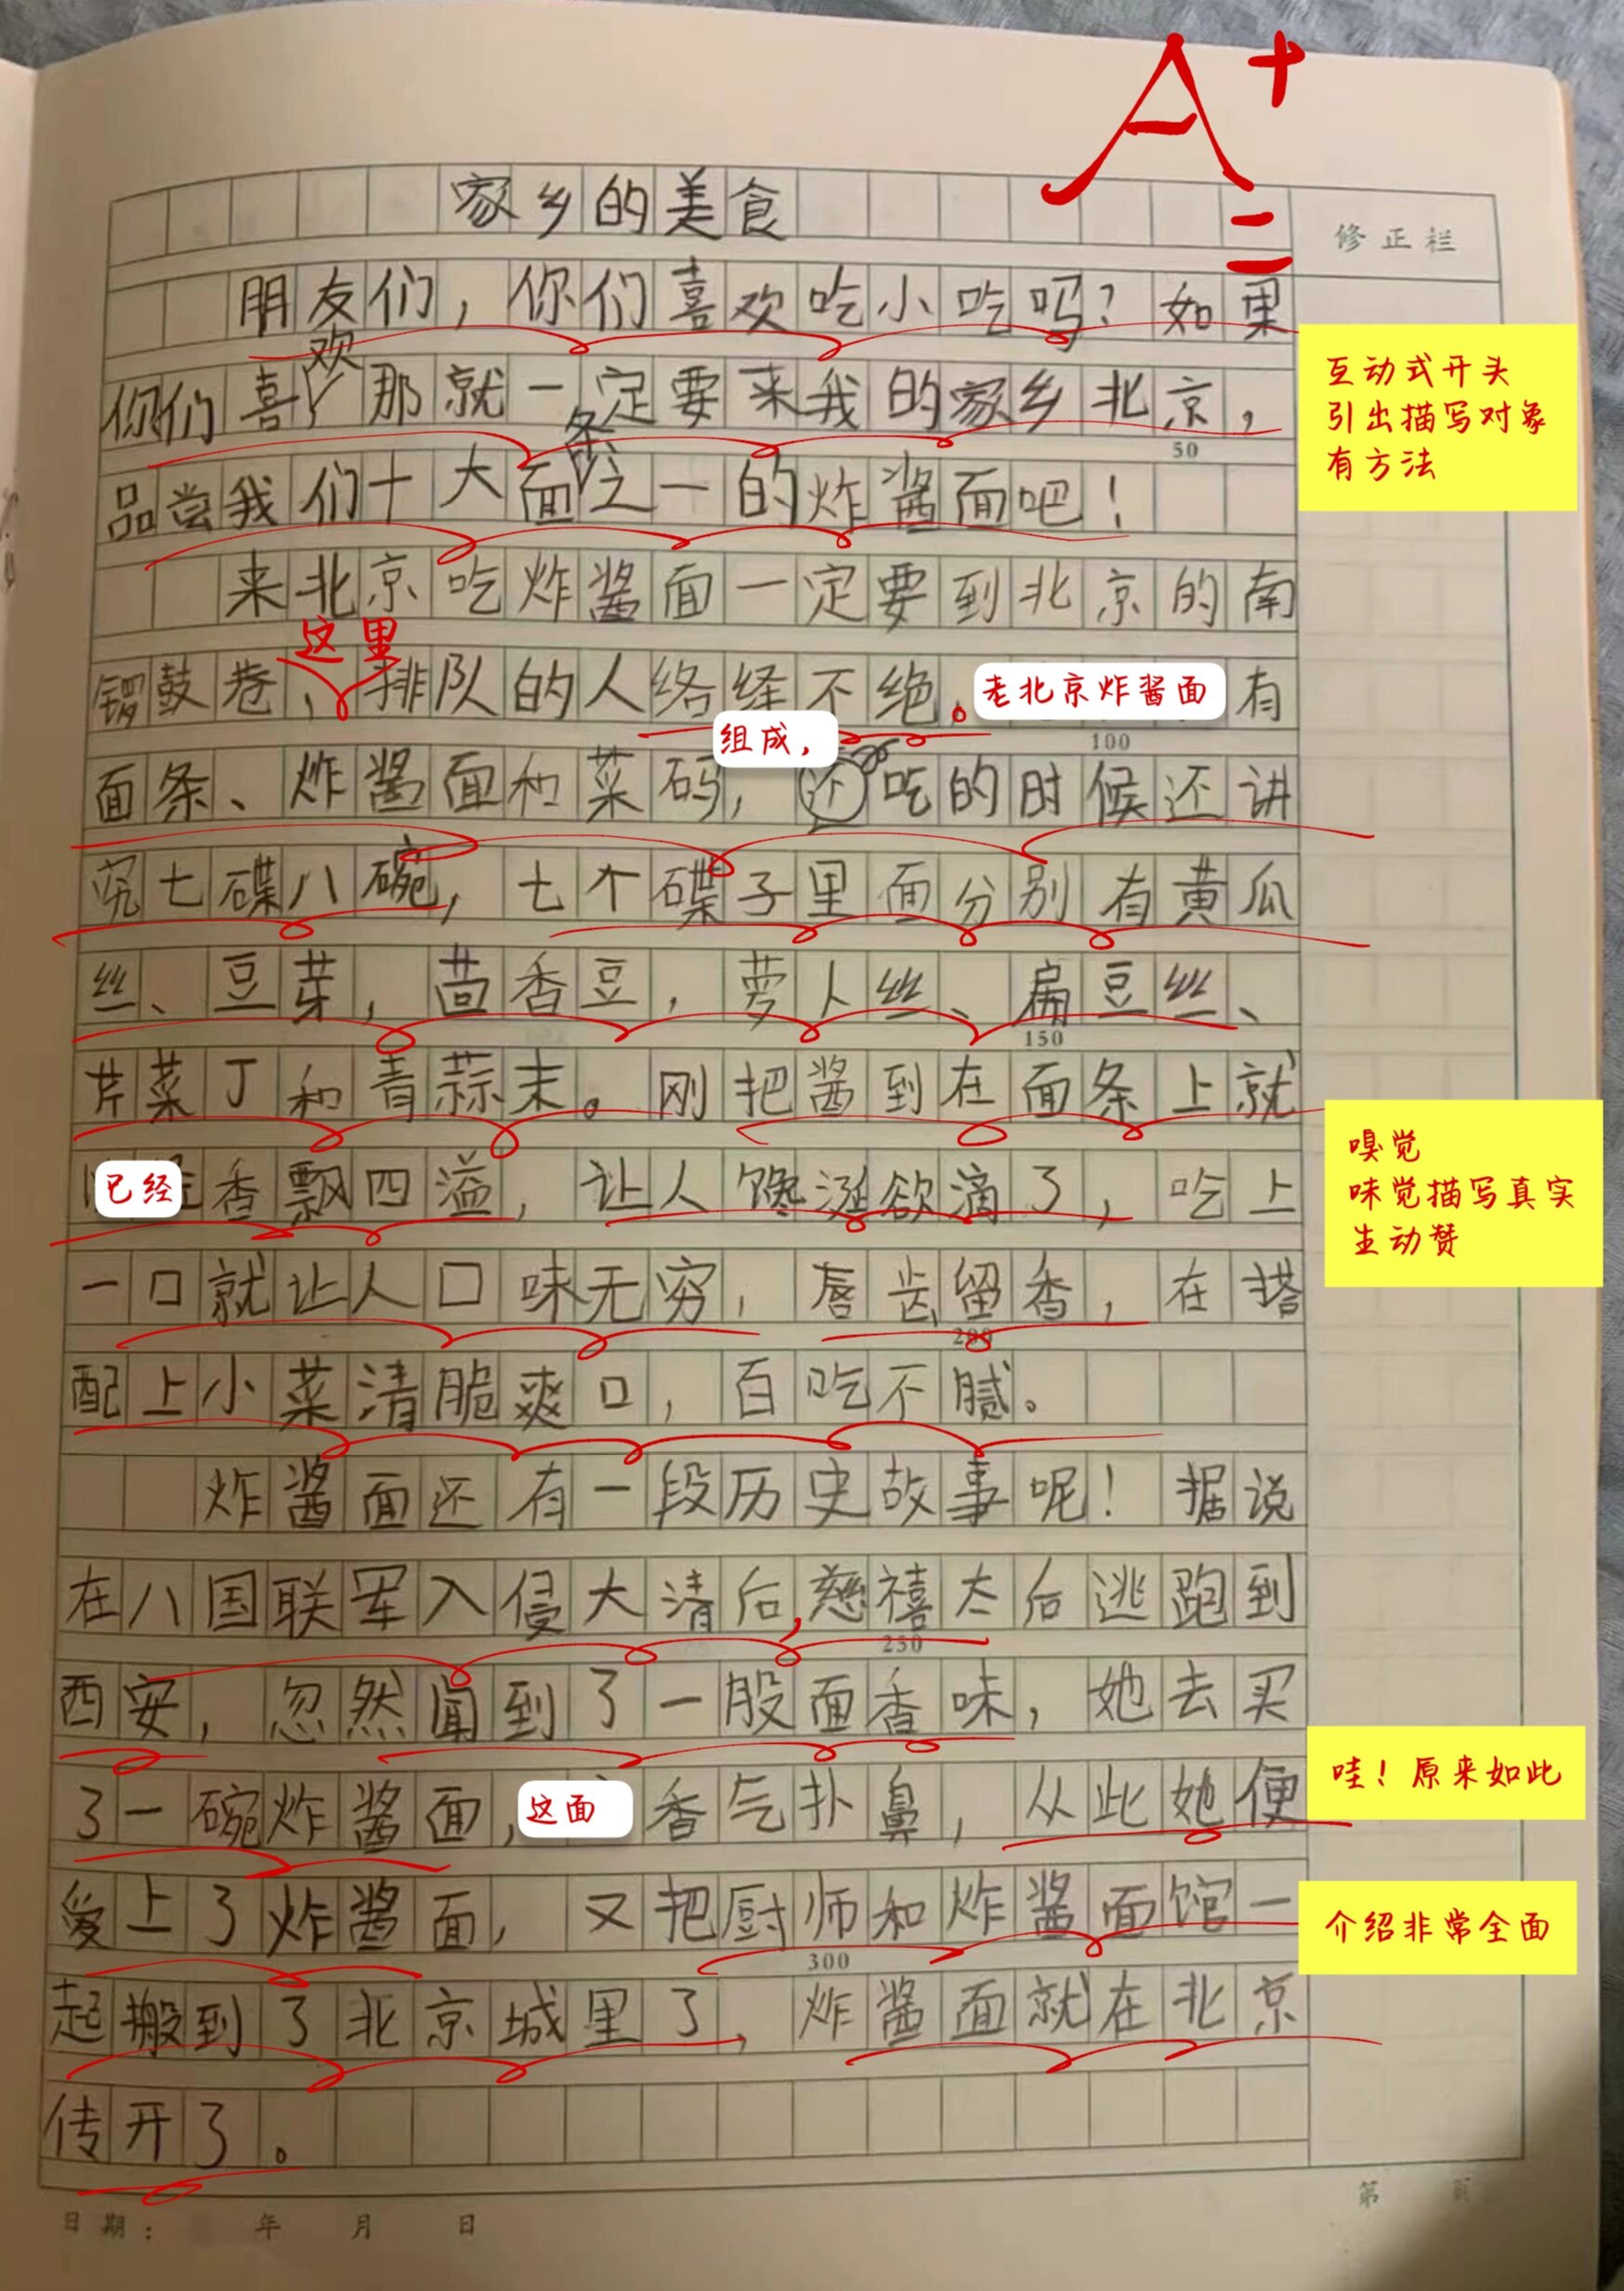 A+
家乡的美食
修正栏
朋友们，你们喜欢吃小吃吗？如果
欢
你们喜那就一定要来我的家乡北京，
互动式开头
引出描写对象
有方法
50
条
品尝我们十大面之一的炸酱面吧！
来北京吃炸酱面一定要到北京的南
这里
锣鼓巷，排队的人络绎不绝。老北京炸酱面有
组成，
100
面条、炸酱面和菜码，还吃的时候还讲
究七碟八碗，七个碟子里面分别有黄瓜
丝、豆芽，茴香豆，萝卜丝、扁豆丝、
150
芹菜丁和青蒜末。刚把酱到在面条上就
已经香飘四溢，让人馋涎欲滴了，吃上
嗅觉
味觉描写真实
生动赞
一口就让人口味无穷，唇齿留香，在搭
200
配上小菜清脆爽口，百吃不腻。
炸酱面还有一段历史故事呢！据说
在八国联军入侵大清后，慈禧太后逃跑到
250
西安，忽然闻到了一股面香味，她去买
哇！原来如此
了一碗炸酱面，这面香气扑鼻，从此她便
爱上了炸酱面，又把厨师和炸酱面馆一
介绍非常全面
300
起搬到了北京城里了，炸酱面就在北京
传开了。
日期： 年 月 日
第 页